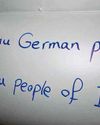 u German p
u people of I